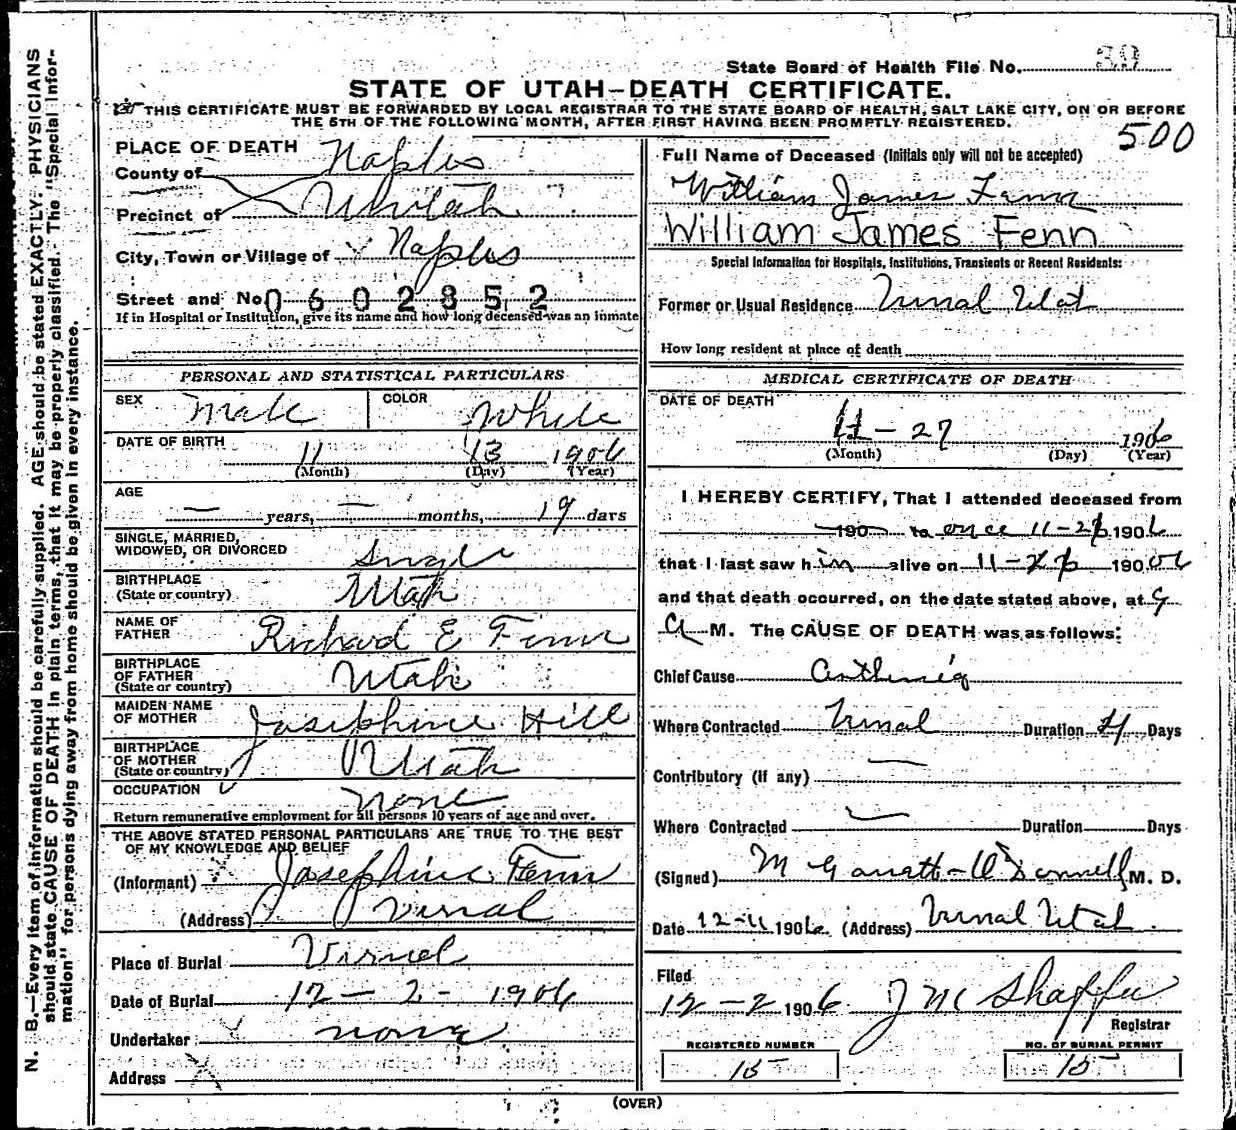 State Board of Health File No. 39
STATE OF UTAH—DEATH CERTIFICATE.
THIS CERTIFICATE MUST BE FORWARDED BY LOCAL REGISTRAR TO THE STATE BOARD OF HEALTH, SALT LAKE CITY, ON OR BEFORE
THE 5TH OF THE FOLLOWING MONTH, AFTER FIRST HAVING BEEN PROMPTLY REGISTERED.
500
PLACE OF DEATH
County of Naples
Precinct of
City, Town or Village of Naples
Street and No. 0602852
If in Hospital or Institution, give its name and how long deceased was an inmate
PERSONAL AND STATISTICAL PARTICULARS
SEX Male COLOR White
DATE OF BIRTH 11 13 1906
(Month) (Day) (Year)
AGE
— years, — months, 19 days
SINGLE, MARRIED,
WIDOWED, OR DIVORCED Single
BIRTHPLACE
(State or country) Utah
NAME OF
FATHER Richard E Fenn
BIRTHPLACE
OF FATHER
(State or country) Utah
MAIDEN NAME
OF MOTHER Josephine Hill
BIRTHPLACE
OF MOTHER
(State or country) Utah
OCCUPATION none
Return remunerative employment for all persons 10 years of age and over.
THE ABOVE STATED PERSONAL PARTICULARS ARE TRUE TO THE BEST
OF MY KNOWLEDGE AND BELIEF
(Informant) Josephine Fenn
(Address) Vernal
Place of Burial Vernal
Date of Burial 12 - 2 - 1906
Undertaker none
Address
Full Name of Deceased (Initials only will not be accepted)
William James Fenn
William James Fenn
Special Information for Hospitals, Institutions, Transients or Recent Residents:
Former or Usual Residence Vernal Utah
How long resident at place of death
MEDICAL CERTIFICATE OF DEATH
DATE OF DEATH
11 - 27 1906
(Month) (Day) (Year)
I HEREBY CERTIFY, That I attended deceased from
190 to once 11-26 1906
that I last saw him alive on 11-26 1906
and that death occurred, on the date stated above, at 9
A M. The CAUSE OF DEATH was as follows:
Chief Cause
Where Contracted Vernal Duration 4 Days
Contributory (if any) —
Where Contracted — Duration Days
(Signed) M. D.
Date 12-11 1906 (Address) Vernal Utah
Filed
12 - 2 1906 J M Shaffer
Registrar
REGISTERED NUMBER NO. OF BURIAL PERMIT
15 15
(OVER)
N. B.—Every item of information should be carefully supplied. AGE should be stated EXACTLY. PHYSICIANS
should state CAUSE OF DEATH in plain terms, that it may be properly classified. The "Special Infor-
mation" for persons dying away from home should be given in every instance.